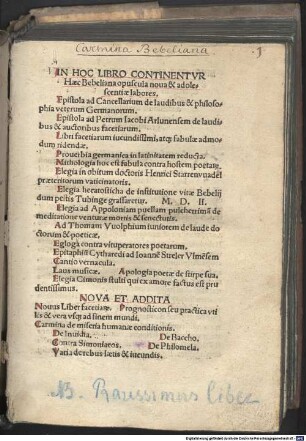 Carmina Bebeliana
IN HOC LIBRO CONTINENTVR
Hæc Bebeliana opuscula noua & adole-
scentiæ labores.
Epistola ad Cancellarium de laudibus & philoso-
phia veterum Germanorum.
Epistola ad Petrum Iacobi Arlunensem de laudi-
bus & auctoribus facetiarum.
Libri facetiarum iucundissimi, atq; fabulæ admo-
dum ridendæ.
Prouerbia germanica in latinitatem reducta.
Mithologia hoc est fabula contra hostem poetarum.
Elegia in obitum doctoris Henrici Starrenuadel
præteritorum vaticinatoris.
Elegia hecatosticha de institutione vitæ Bebelij
dum pestis Tubingæ grassaretur. M. D. II
Elegia ad Appoloniam puellam pulcherrimã de
meditatione venturæ mortis & senectutis.
Ad Thomam Vuolphium iuniorem de laude do-
ctorum & poeticæ.
Egloga contra vituperatores poetarum.
Epitaphiũ Cytharedi ad Ioannẽ Streler Vlmẽsem
Cantio vernacula.
Laus musicæ. Apologia poetæ de stirpe sua.
Elegia Cimonis stulti qui ex amore factus est pru
dentissimus.
NOVA ET ADDITA
Nouus Liber facetiarũ. Prognosticon seu practica vti
lis & vera vsq; ad finem mundi.
Carmina de miseria humanæ conditionis.
De Inuidia. De Baccho.
Contra Simoniacos. De Philomela.
Varia de rebus lætis & iucundis.
NB. Rarissimus liber